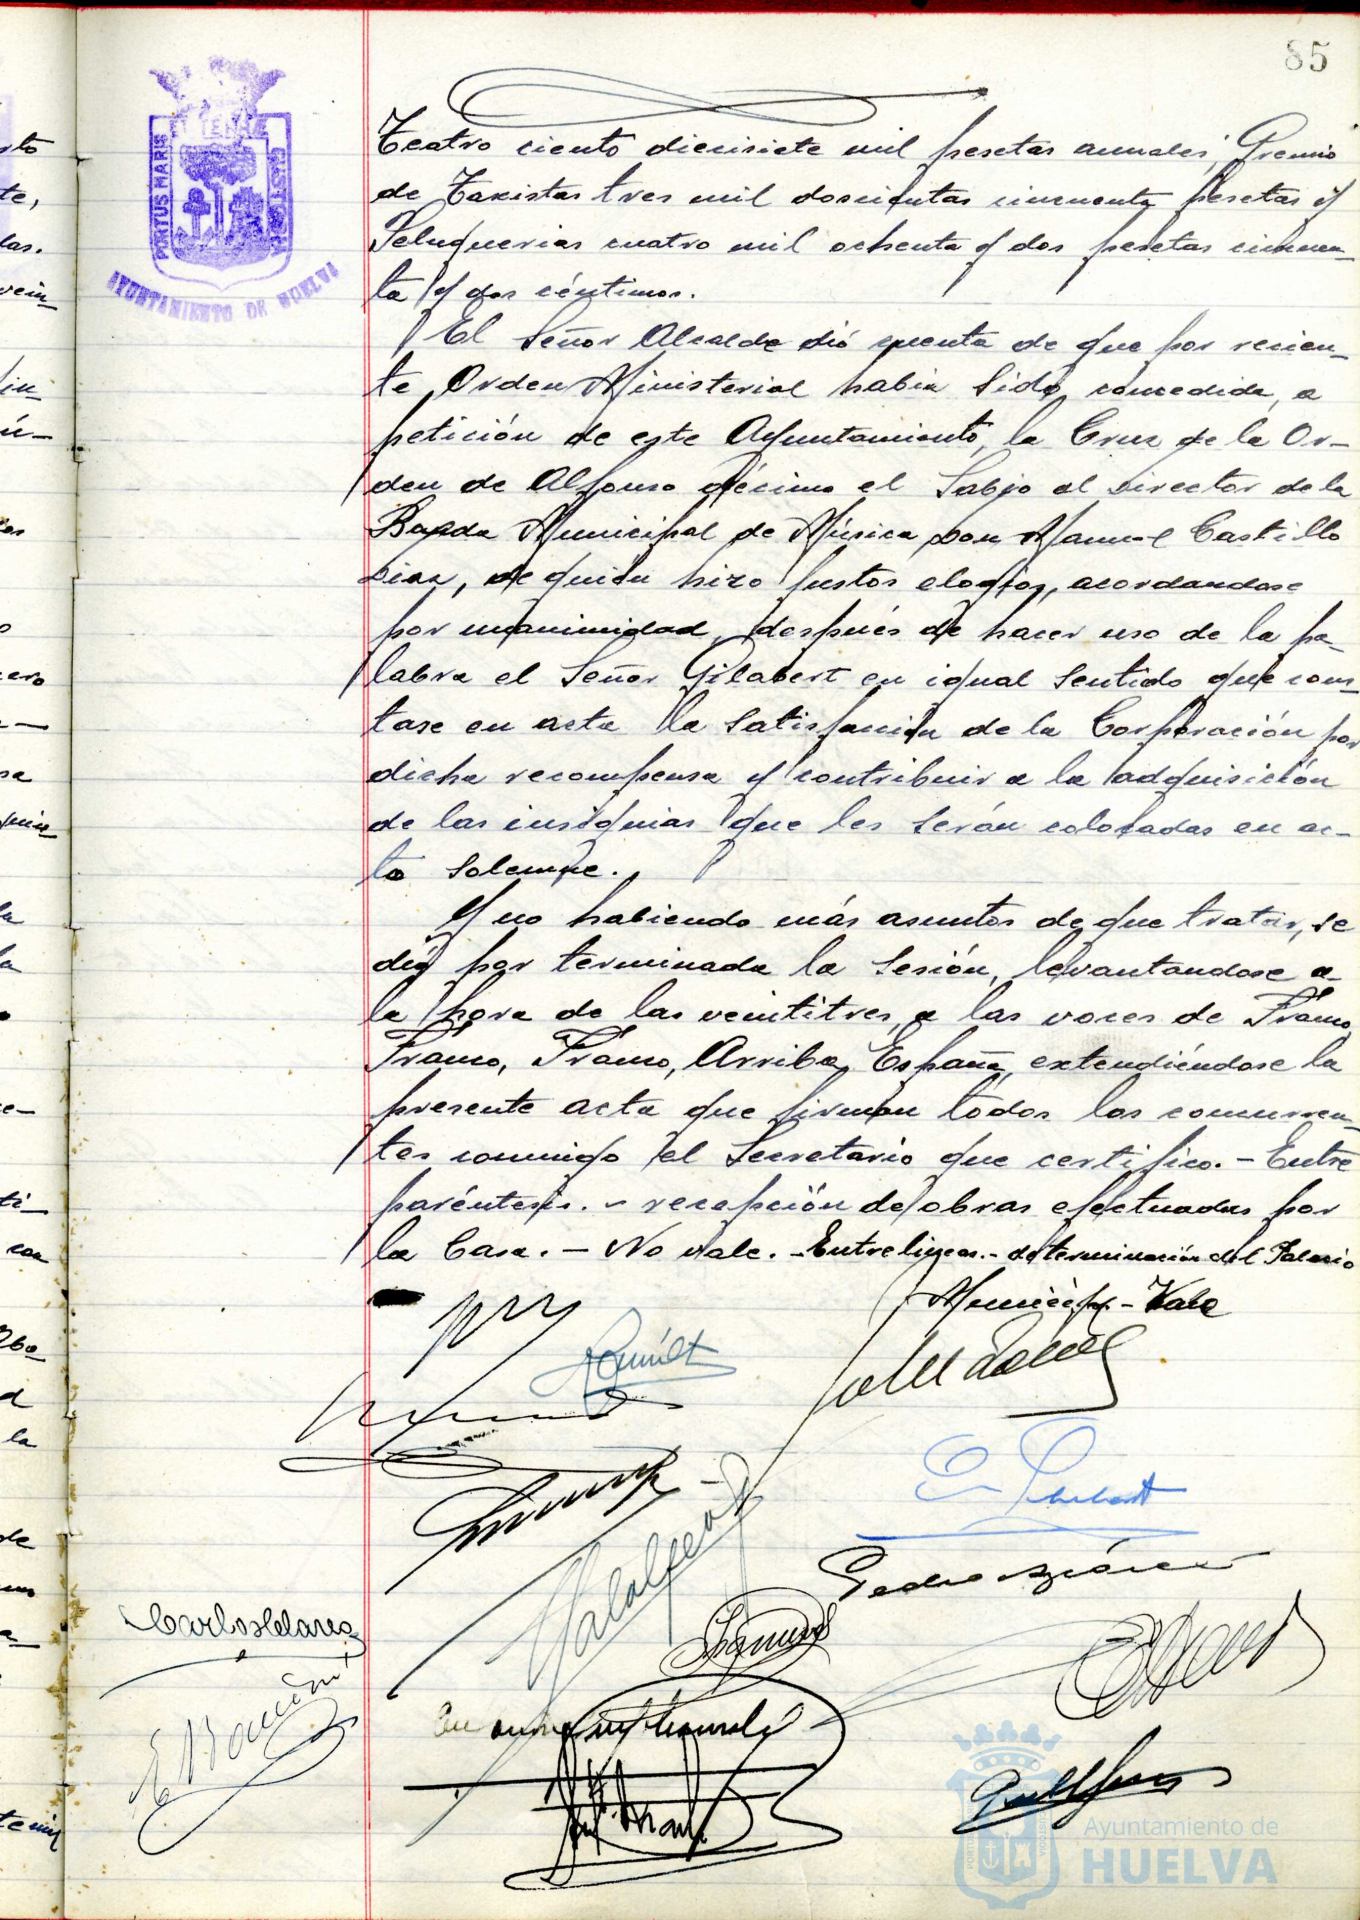 85
PORTUS MARIS
ET TERRÆ
CUSTODIA
AYUNTAMIENTO DE HUELVA
Teatro ciento diecisiete mil pesetas anuales; Gremio
de Taxistas tres mil doscientas cincuenta pesetas y
Peluquerias cuatro mil ochenta y dos pesetas cincuen-
ta y dos céntimos.
El Señor Alcalde dió cuenta de que por recien-
te Orden Ministerial habia sido concedida, a
petición de este Ayuntamiento, la Cruz de la Or-
den de Alfonso décimo el Sabio al Director de la
Banda Municipal de Música Don Manuel Castillo
Diaz, de quien hizo justos elogios, acordandose
por unanimidad, después de hacer uso de la pa-
labra el Señor Gilabert en igual sentido que cons-
tase en acta la satisfacción de la Corporación por
dicha recompensa y contribuir a la adquisición
de las insignias que les serán colocadas en ac-
to solemne.
Y no habiendo más asuntos de que tratar, se
dió por terminada la sesión, levantandose a
la hora de las veintitres, a las voces de Franco,
Franco, Franco, Arriba España, extendiéndose la
presente acta que firman todos los concurren-
tes conmigo el Secretario que certifico. - Entre
paréntesis. - recepción de obras efectuadas por
la Casa. - No vale. - Entrelineas. - determinación del Palacio
Municipal - Vale
Ayuntamiento de
HUELVA